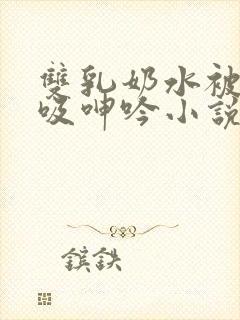 雙乳奶水被
吸呻吟小說
鑌鉄